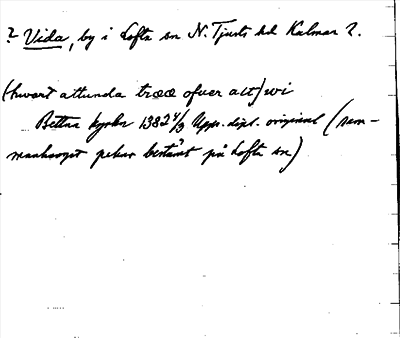 ? Vida, by i Lofta sn N. Tjusts hd Kalmar l.
(hwart attunda træææ ofuer alt) wi
Bettna kyrka 1382 4/3 Upps. dipl. original (sam-
manhanget pekar bestämt på Lofta sn)